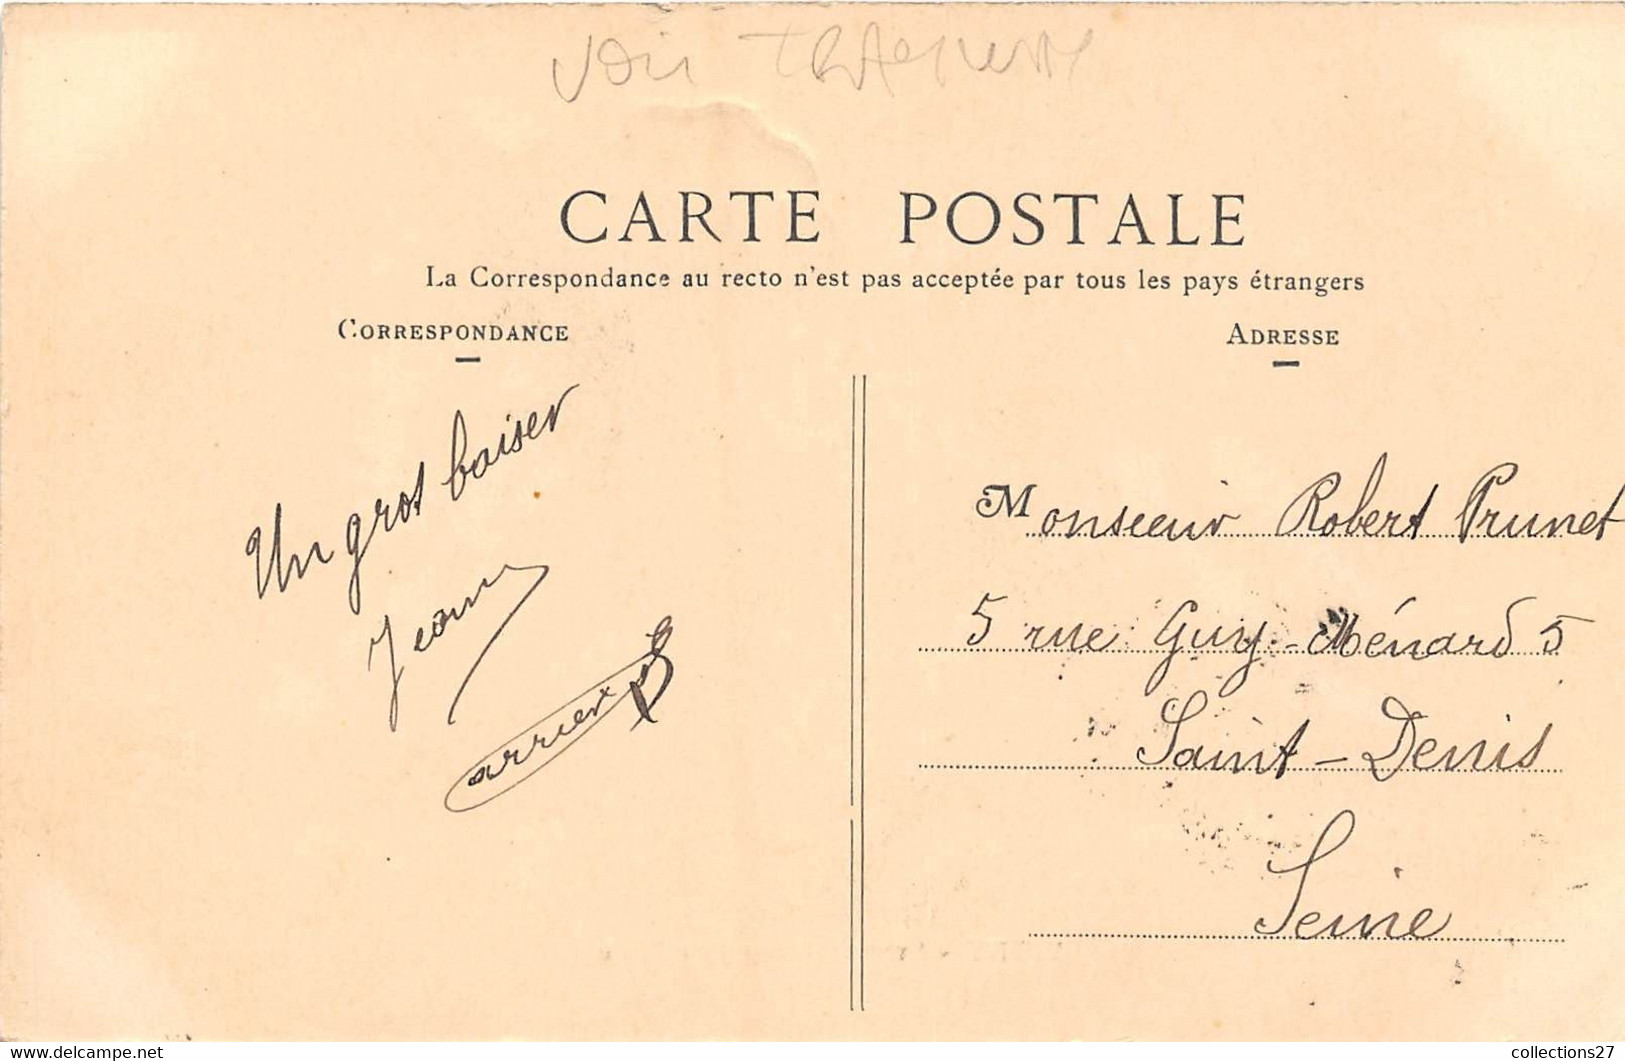 voir
CARTE POSTALE
La Correspondance au recto n'est pas acceptée par tous les pays étrangers
CORRESPONDANCE
ADRESSE
Un gros baiser
Jeanne
Monsieur Robert Prunet
5 rue Guy-Ménard 5
Saint-Denis
Seine
www.delcampe.net
collections27